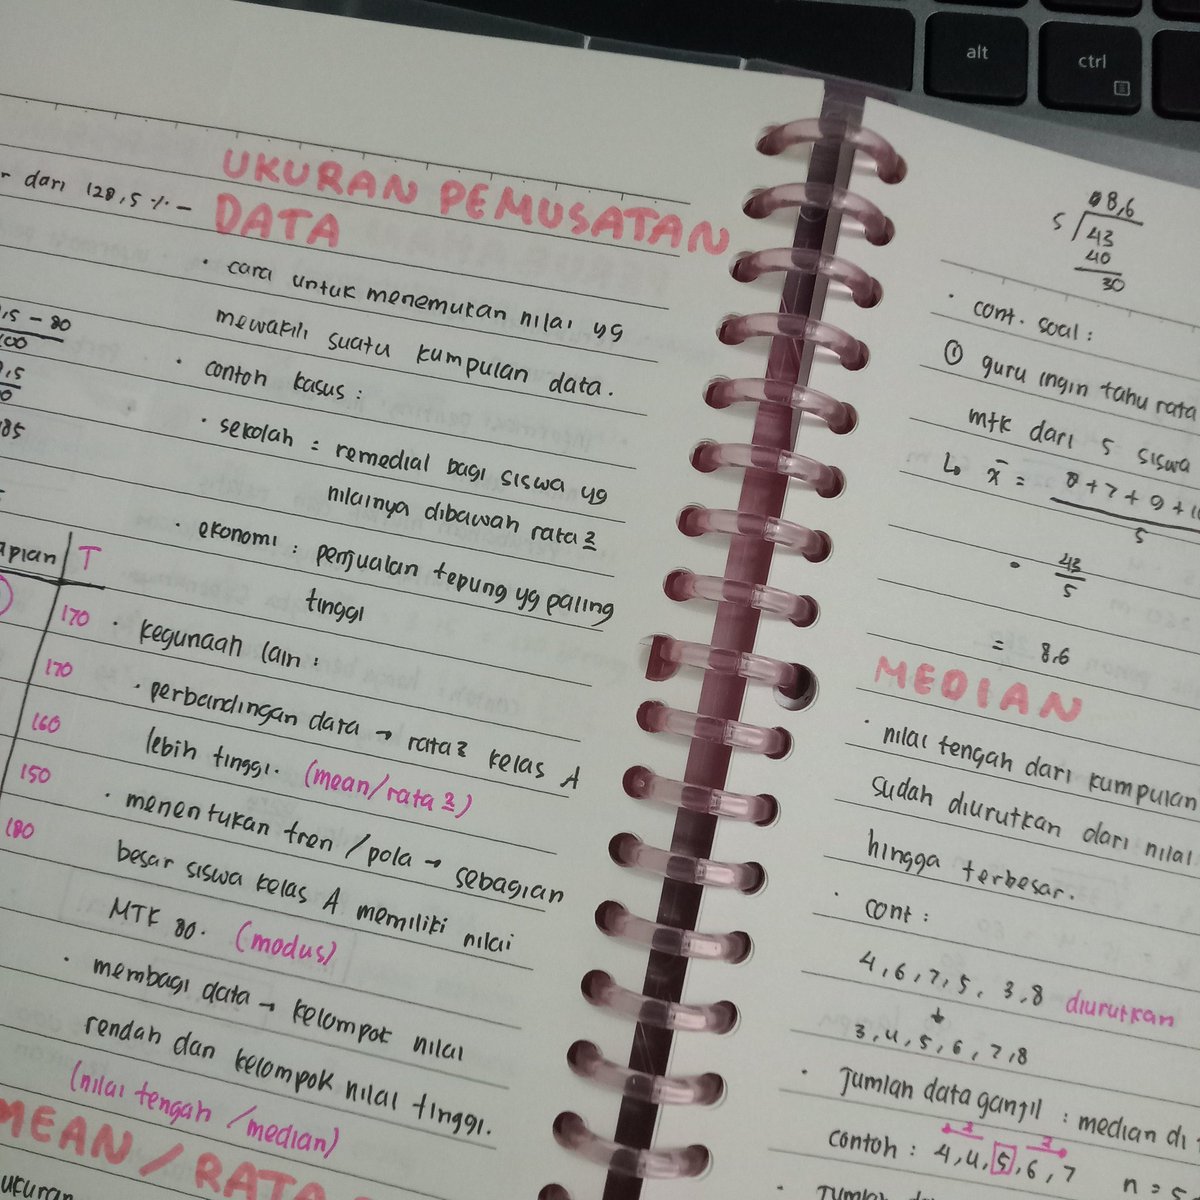 alt
ctrl
r dari 128,5 % -
,5 - 80
100
,5
0
85
apian T
170
170
160
150
180
UKURAN PEMUSATAN
DATA
· cara untuk menemukan nilai yg
mewakili suatu kumpulan data.
· contoh kasus :
· sekolah : remedial bagi siswa yg
nilainya dibawah rata2
· ekonomi : penjualan tepung yg paling
tinggi
· kegunaan lain :
· perbandingan data → rata2 kelas A
lebih tinggi. (mean/rata2)
· menentukan tren / pola → sebagian
besar siswa kelas A memiliki nilai
MTK 80. (modus)
· membagi data → kelompok nilai
rendah dan kelompok nilai tinggi.
(nilai tengah / median)
MEAN / RATA
ukuran
08,6
5 43
40
30
· cont. soal :
① guru ingin tahu rata
mtk dari 5 siswa
↳ x̄ = 8 + 7 + 9 + 10
5
= 43
5
= 8.6
MEDIAN
· nilai tengah dari kumpulan
sudah diurutkan dari nilai
hingga terbesar.
· cont :
4, 6, 7, 5, 3, 8 diurutkan
↓
3, 4, 5, 6, 7, 8
· Jumlah data ganjil : median di
2 2
contoh : 4, 4, 5, 6, 7 n = 5